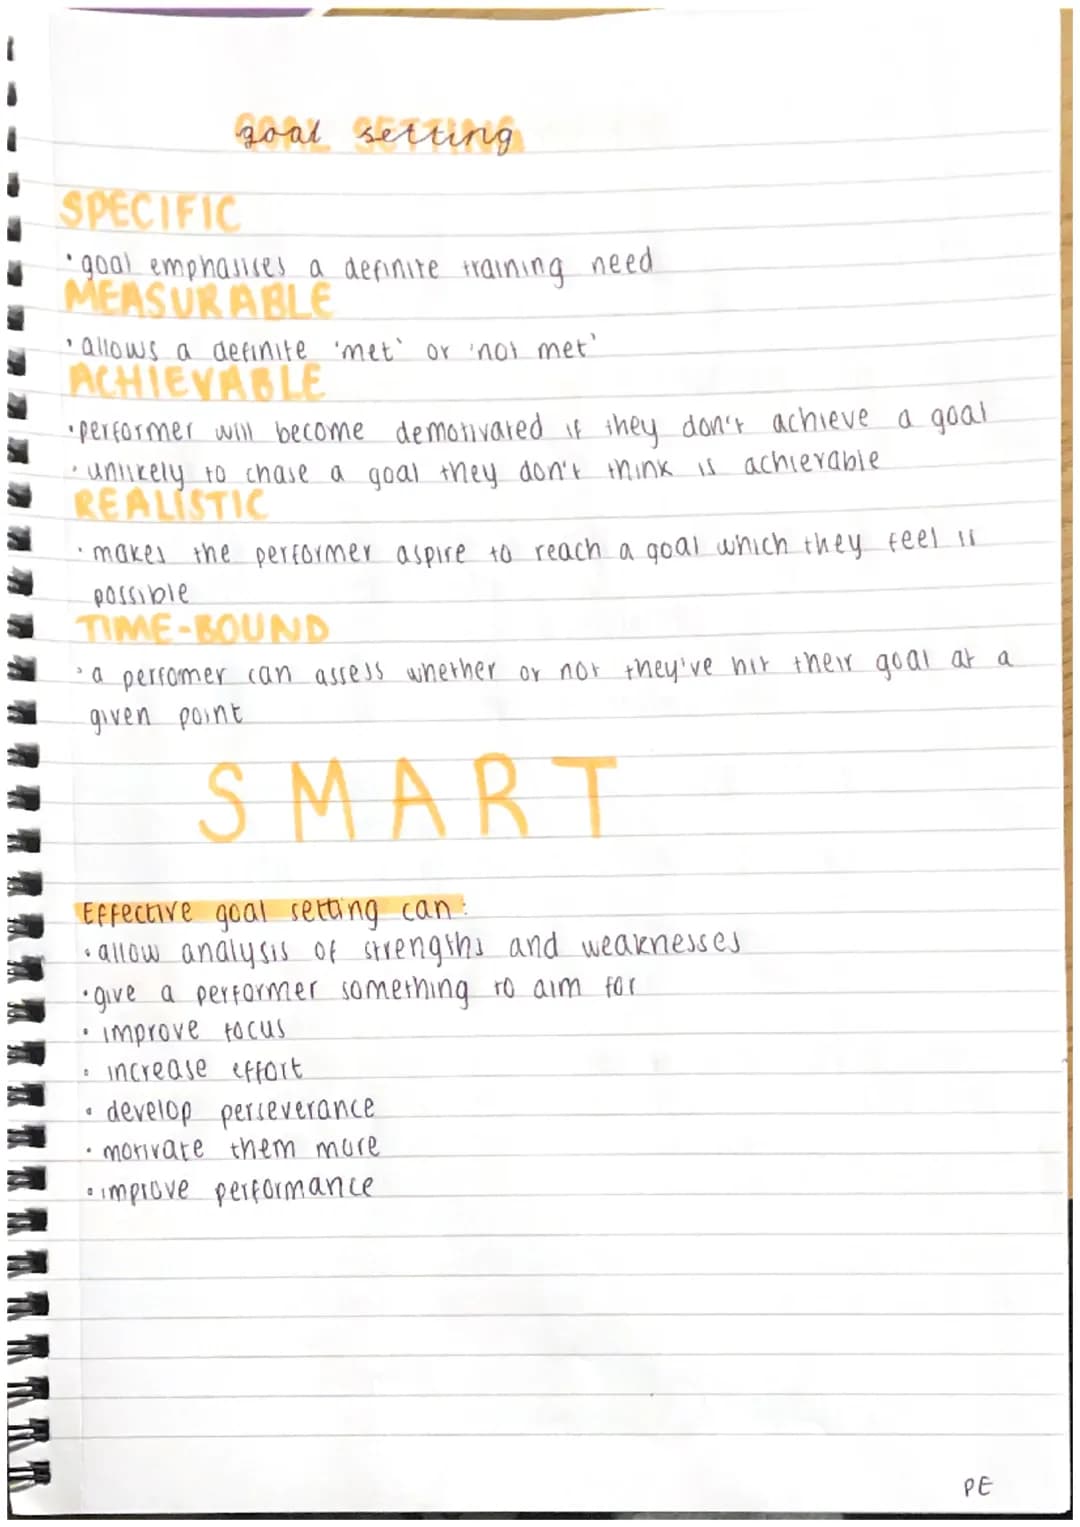 goal setting
SPECIFIC
• goal emphasises a definite training need
MEASURABLE
• allows a definite 'met' or 'not met'
ACHIEVABLE
• performer will become demotivated if they don't achieve a goal
• unlikely to chase a goal they don't think is achievable
REALISTIC
• makes the performer aspire to reach a goal which they feel is
possible
TIME-BOUND
• a perfomer can assess whether or not they've hit their goal at a
given point
SMART
Effective goal setting can:
• allow analysis of strengths and weaknesses
• give a performer something to aim for
• improve focus
• increase effort
• develop perseverance
• motivate them more
• improve performance
PE